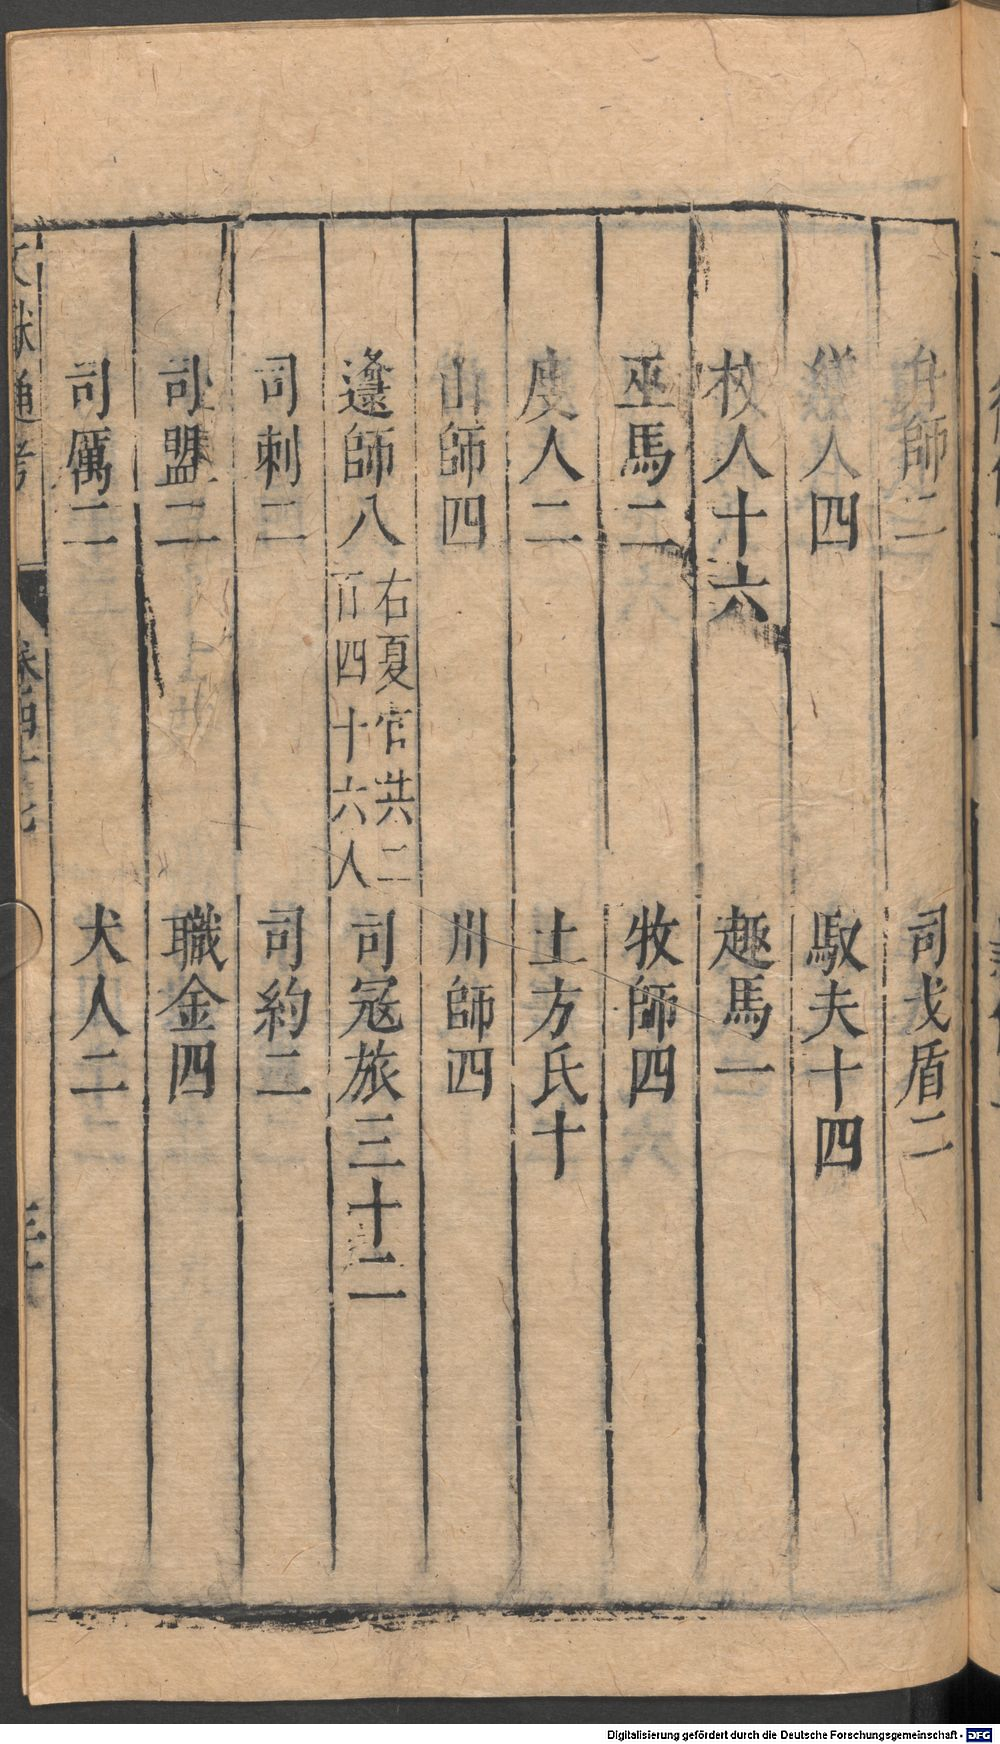 弁師二　司戈盾二
繕人四　馭夫十四
校人十六　趣馬一
巫馬二　牧師四
廋人二　土方氏十
山師四　川師四
邍師八　右夏官共二百四十六人　司冦旅三十二
司刺二　司約二
司盟二　職金四
司厲二　犬人二
文獻通考　卷四十七
Digitalisierung gefördert durch die Deutsche Forschungsgemeinschaft - DFG